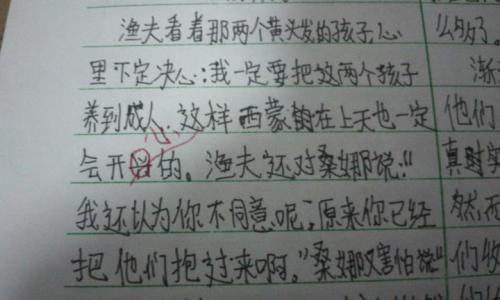 渔夫看着那两个黄头发的孩子心
里下定决心:我一定要把这两个孩子
养到成人,这样西蒙在上天也一定
心
会开的。渔夫还对桑娜说:“
我还认为你不同意呢,原来你已经
把他们抱过来啊。”桑娜又害怕说“
么够了。
渐
他们
真
然而
们收